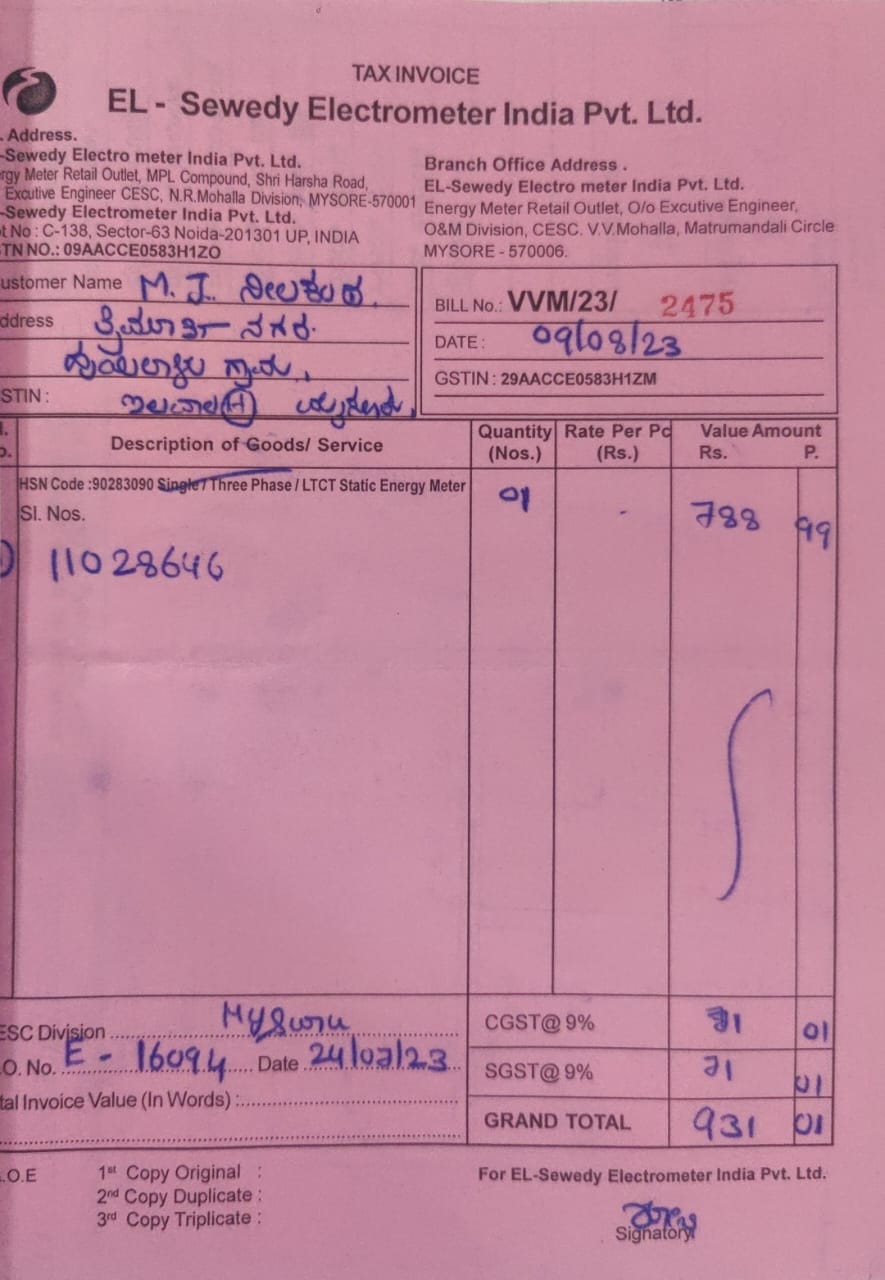 TAX INVOICE
EL - Sewedy Electrometer India Pvt. Ltd.
. Address.
-Sewedy Electro meter India Pvt. Ltd.
rgy Meter Retail Outlet, MPL Compound, Shri Harsha Road,
Excutive Engineer CESC, N.R.Mohalla Division, MYSORE-570001
-Sewedy Electrometer India Pvt. Ltd.
t No : C-138, Sector-63 Noida-201301 UP, INDIA
TN NO.: 09AACCE0583H1ZO
Branch Office Address .
EL-Sewedy Electro meter India Pvt. Ltd.
Energy Meter Retail Outlet, O/o Excutive Engineer,
O&M Division, CESC. V.V.Mohalla, Matrumandali Circle
MYSORE - 570006.
ustomer Name M. J.
ddress ನಗರ.
STIN :
BILL No.: VVM/23/ 2475
DATE : 09/08/23
GSTIN : 29AACCE0583H1ZM
Description of Goods/ Service
Quantity (Nos.)
Rate Per Pc (Rs.)
Value Amount
Rs. P.
HSN Code :90283090 Single / Three Phase / LTCT Static Energy Meter 01 - 788 99
Sl. Nos.
11028646
ESC Division
CGST@ 9% 71 01
O. No. E - 16094 Date 24/07/23
SGST@ 9% 71 01
tal Invoice Value (In Words) :
GRAND TOTAL 931 01
.O.E
1st Copy Original :
2nd Copy Duplicate :
3rd Copy Triplicate :
For EL-Sewedy Electrometer India Pvt. Ltd.
Signatory